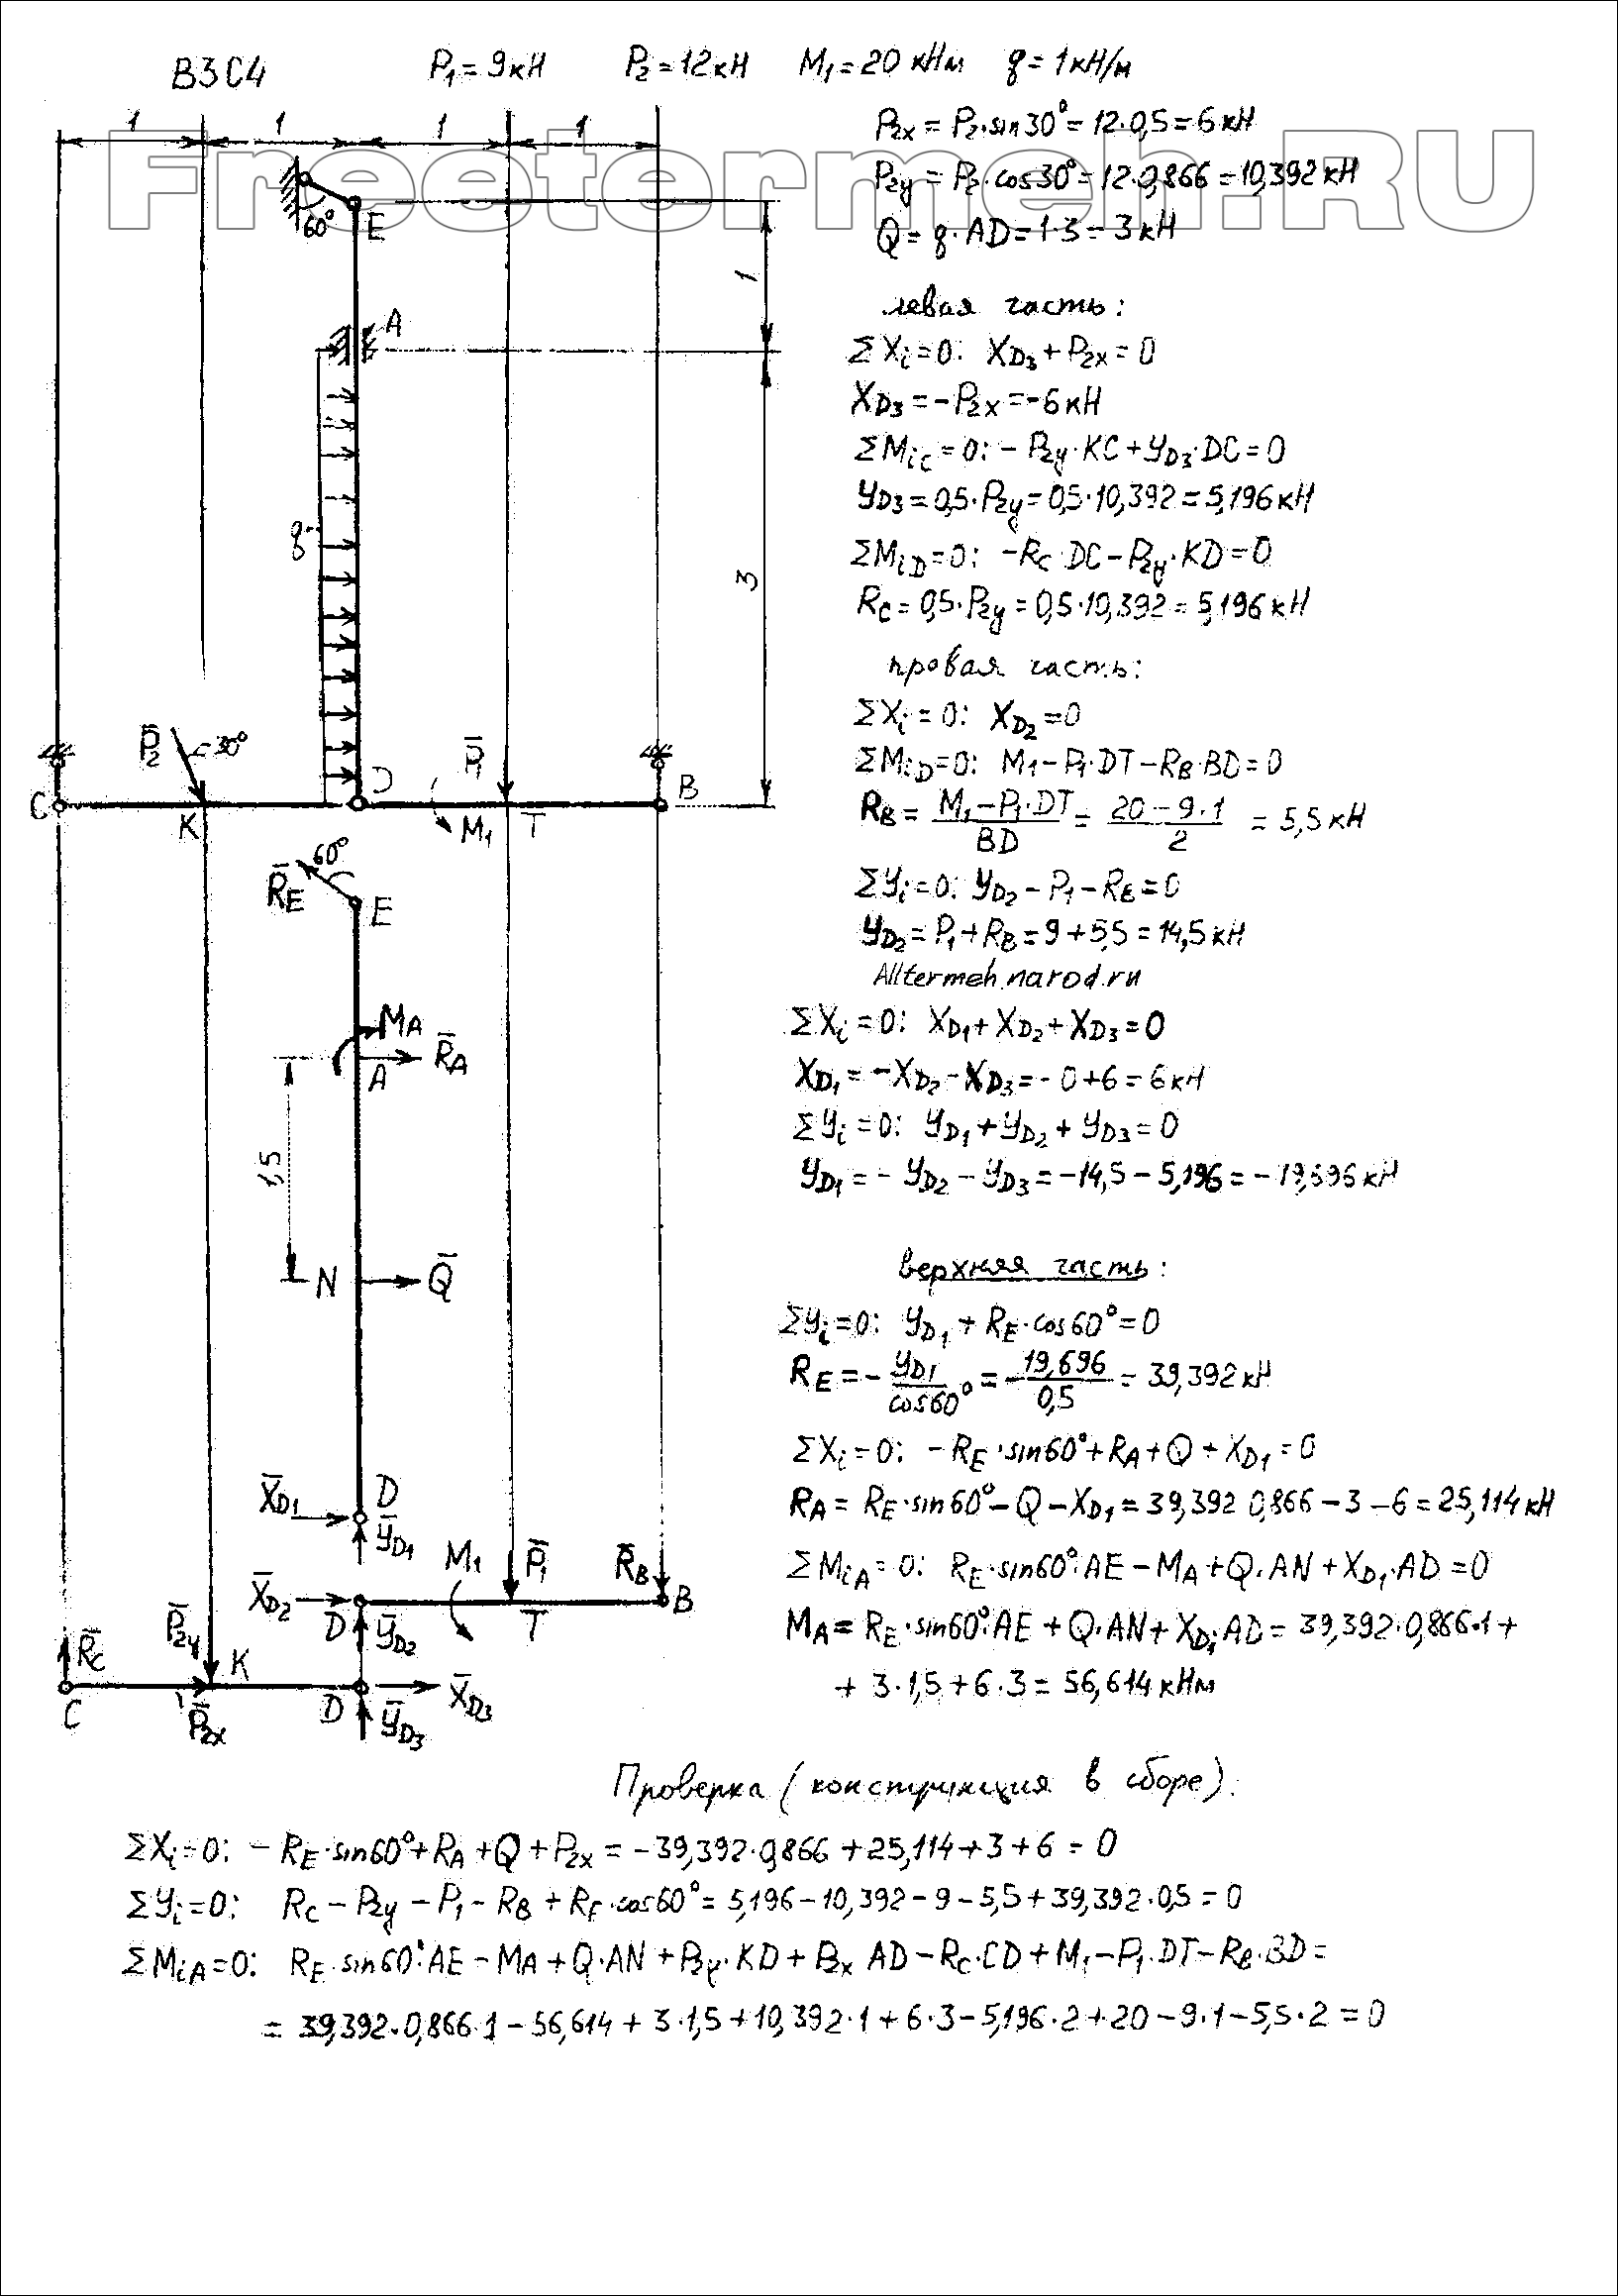 В3С4 P₁=9кН P₂=12кН M₁=20 кНм q=1кН/м
Freetermeh.RU
1 1 1 1
P₂ₓ = P₂·sin30°=12·0,5=6кН
P₂y = P₂·cos30°=12·0,866=10,392кН
Q= q·AD=1·3=3кН
60°
E
1
A
левая часть:
ΣXᵢ=0: X_D3+P₂ₓ=0
X_D3=-P₂ₓ=-6кН
ΣM_iC=0: -P₂y·KC+Y_D3·DC=0
q
Y_D3=0,5·P₂y=0,5·10,392=5,196кН
3
ΣM_iD=0: -R_C·DC-P₂y·KD=0
R_C=0,5·P₂y=0,5·10,392=5,196кН
провая часть:
ΣXᵢ=0: X_D2=0
P̅₂ 30° D P̅₁ B
ΣM_iD=0: M₁-P₁·DT-R_B·BD=0
C K M₁ T
R_B = (M₁-P₁·DT)/BD = (20-9·1)/2 = 5,5кН
60°
R̅_E E
ΣYᵢ=0: Y_D2-P₁-R_B=0
Y_D2=P₁+R_B=9+5,5=14,5кН
Alltermeh.narod.ru
M_A
R̅_A
A
ΣXᵢ=0: X_D1+X_D2+X_D3=0
X_D1=-X_D2-X_D3=-0+6=6кН
ΣYᵢ=0: Y_D1+Y_D2+Y_D3=0
1,5
Y_D1=-Y_D2-Y_D3=-14,5-5,196=-19,696кН
N Q̅
верхняя часть:
ΣYᵢ=0: Y_D1+R_E·cos60°=0
R_E=-Y_D1/cos60°=-19,696/0,5=39,392кН
ΣXᵢ=0: -R_E·sin60°+R_A+Q+X_D1=0
X̅_D1 D
Y̅_D1
R_A=R_E·sin60°-Q-X_D1=39,392 0,866-3-6=25,114кН
M₁ P̅₁ R̅_B
ΣM_iA=0: R_E·sin60°·AE-M_A+Q·AN+X_D1·AD=0
X̅_D2 D Y̅_D2 T B
M_A=R_E·sin60°·AE+Q·AN+X_D1·AD=39,392·0,866·1+
+3·1,5+6·3=56,614кНм
R̅_C P̅₂y K
C P̅₂ₓ D Y̅_D3 X̅_D3
Проверка (конструкция в сборе).
ΣXᵢ=0: -R_E·sin60°+R_A+Q+P₂ₓ=-39,392·0,866+25,114+3+6=0
ΣYᵢ=0: R_C-P₂y-P₁-R_B+R_E·cos60°=5,196-10,392-9-5,5+39,392·0,5=0
ΣM_iA=0: R_E·sin60°·AE-M_A+Q·AN+P₂y·KD+P₂ₓ AD-R_C·CD+M₁-P₁·DT-R_B·BD=
=39,392·0,866·1-56,614+3·1,5+10,392·1+6·3-5,196·2+20-9·1-5,5·2=0